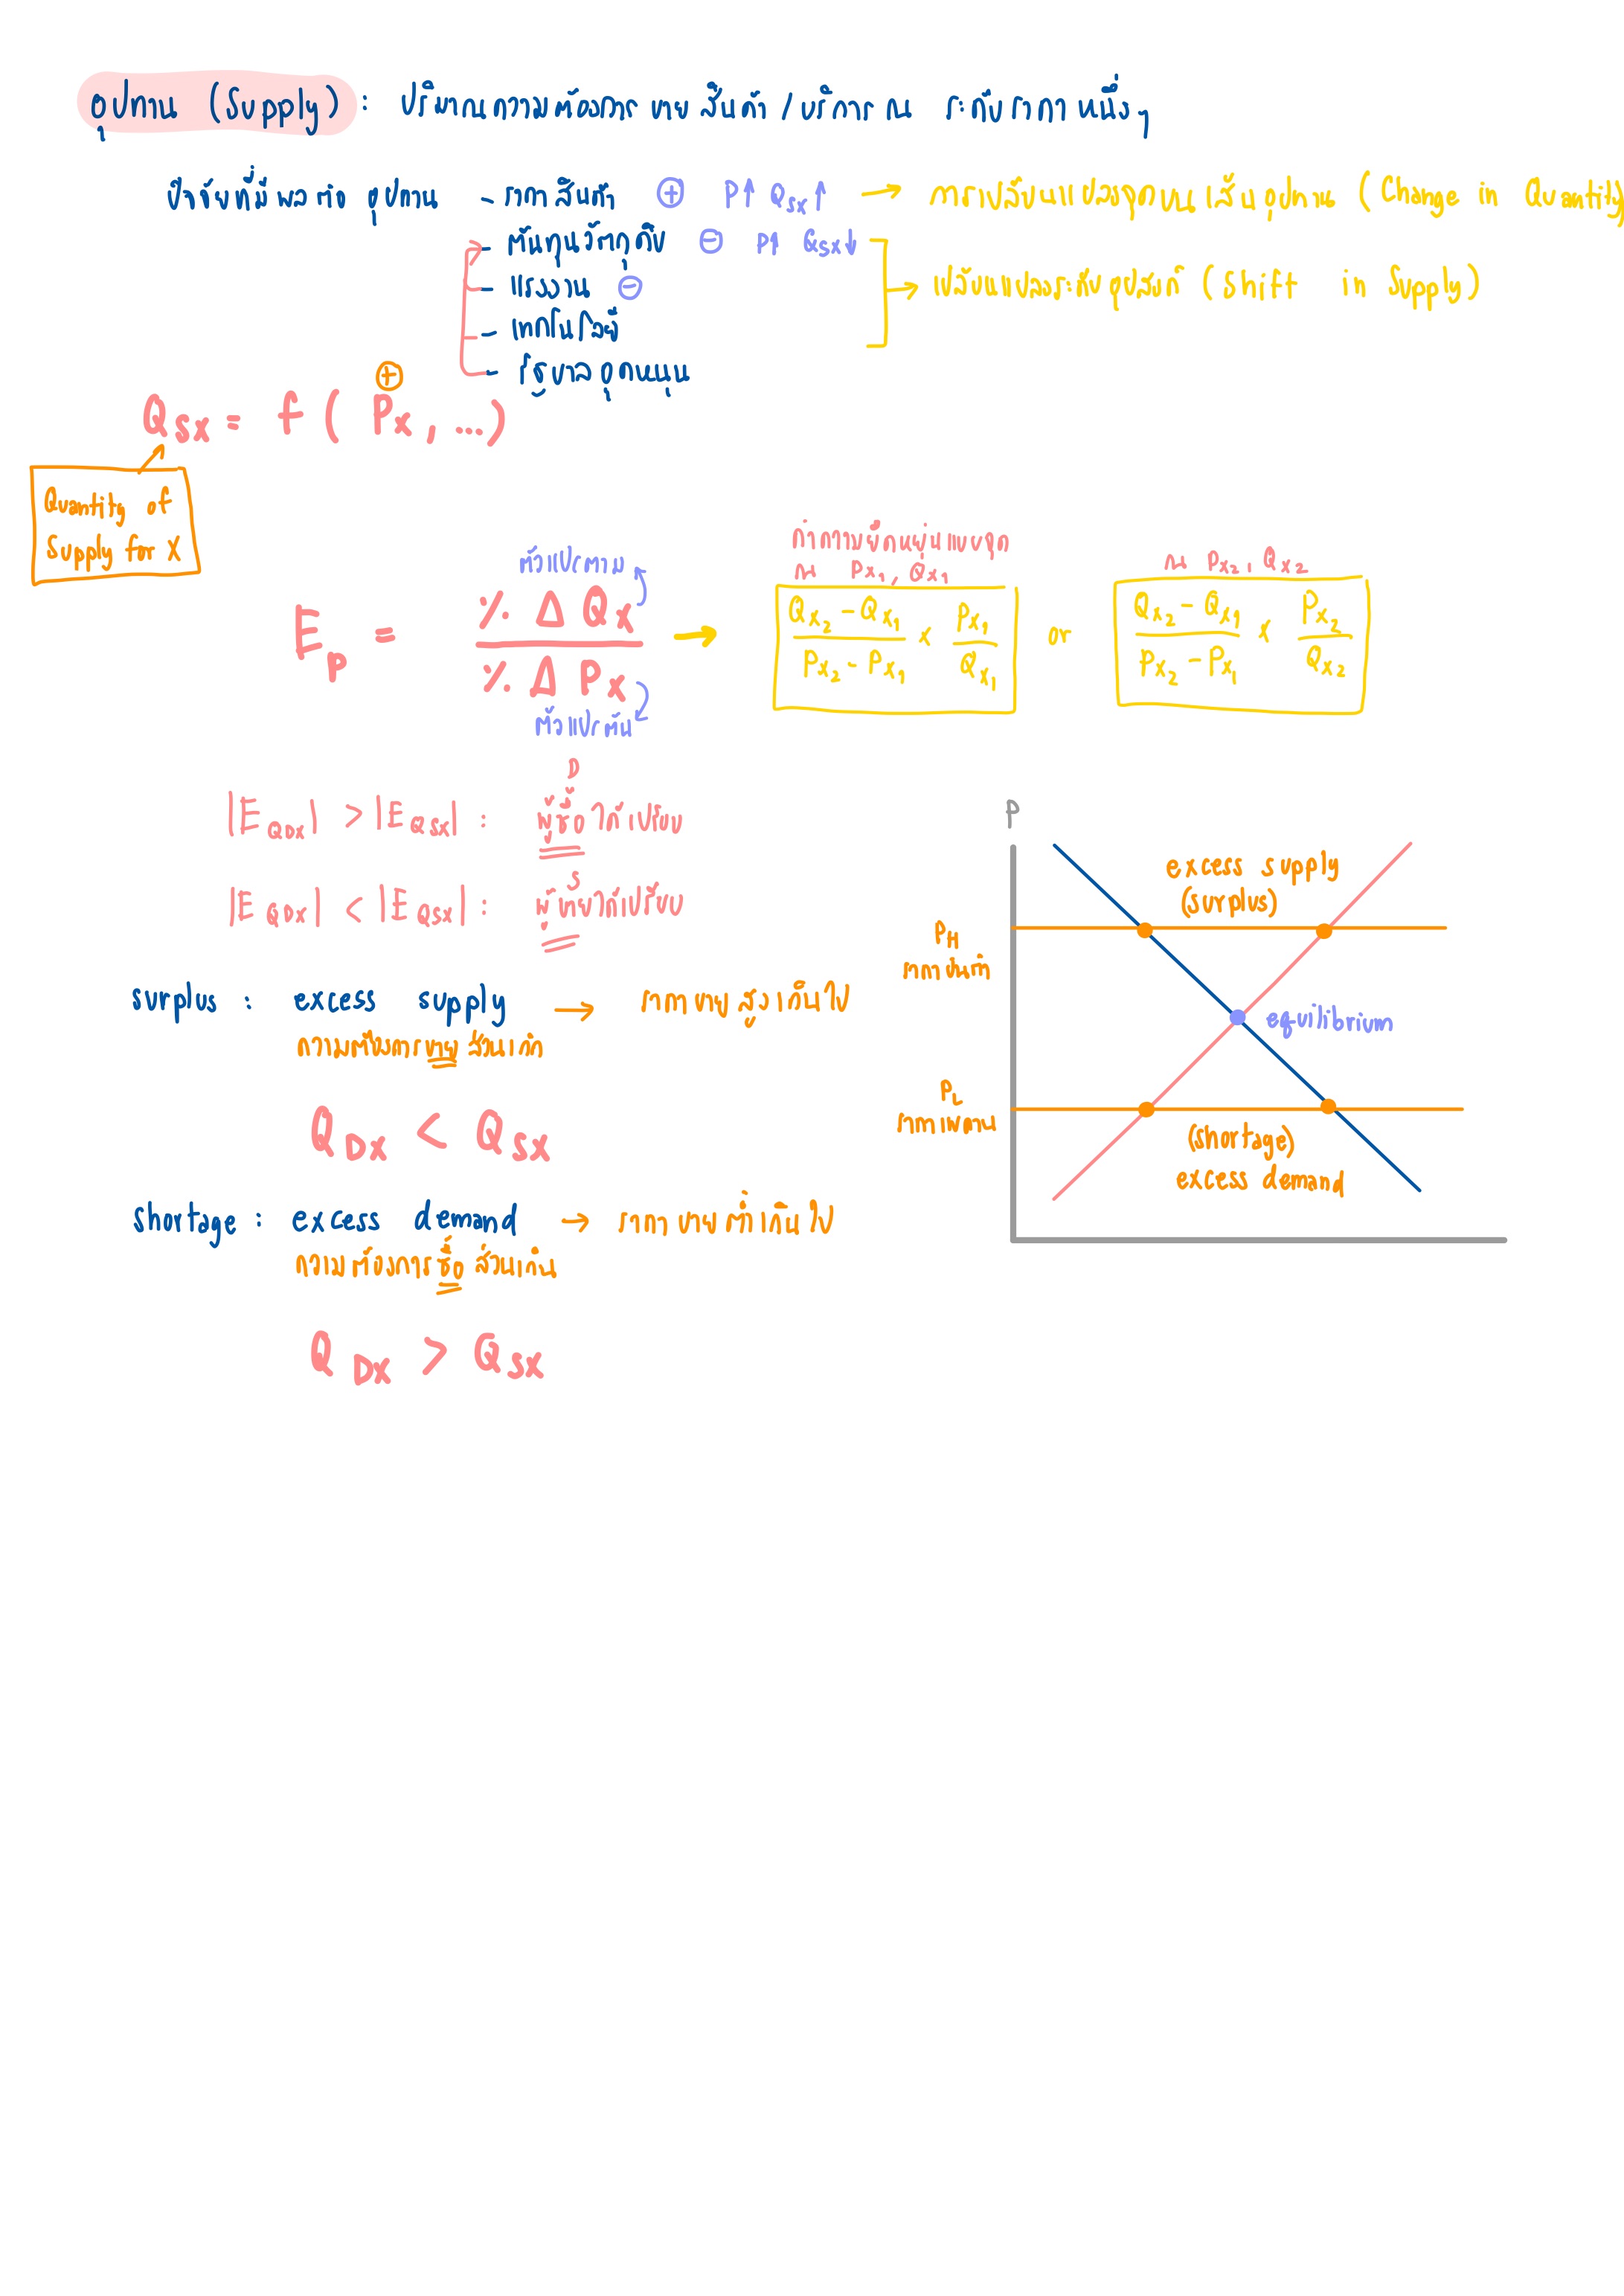 อุปทาน (Supply) : ปริมาณความต้องการ ขาย สินค้า / บริการ ณ ระดับราคา หนึ่งๆ
ปัจจัยที่มีผลต่อ อุปทาน - ราคาสินค้า ⊕ P↑ Qsx↑ → การเปลี่ยนแปลงจุดบนเส้นอุปทาน (Change in Quantity)
- ต้นทุนวัตถุดิบ ⊖ P↑ Qsx↓
- แรงงาน ⊖ → เปลี่ยนแปลงระดับอุปสงค์ (Shift in Supply)
- เทคโนโลยี
- รัฐบาลอุดหนุน
⊕
Qsx = f ( Px , ...)
Quantity of
Supply for X
ตัวแปรตาม
Ep = % Δ Qx / % Δ Px →
ตัวแปรต้น
ค่าความยืดหยุ่นแบบจุด
ณ Px1, Qx1
Qx2 - Qx1 / Px2 - Px1 x Px1 / Qx1
or
ณ Px2, Qx2
Qx2 - Qx1 / Px2 - Px1 x Px2 / Qx2
D
|EQDx| > |EQSx| : ผู้ซื้อได้เปรียบ
S
|EQDx| < |EQSx| : ผู้ขายได้เปรียบ
surplus : excess supply → ราคาขายสูงเกินไป
ความต้องการขายส่วนเกิน
QDx < QSx
shortage : excess demand → ราคาขายต่ำเกินไป
ความต้องการซื้อส่วนเกิน
QDx > QSx
P
excess supply
(surplus)
PH
ราคาขั้นต่ำ
equilibrium
PL
ราคาเพดาน
(shortage)
excess demand